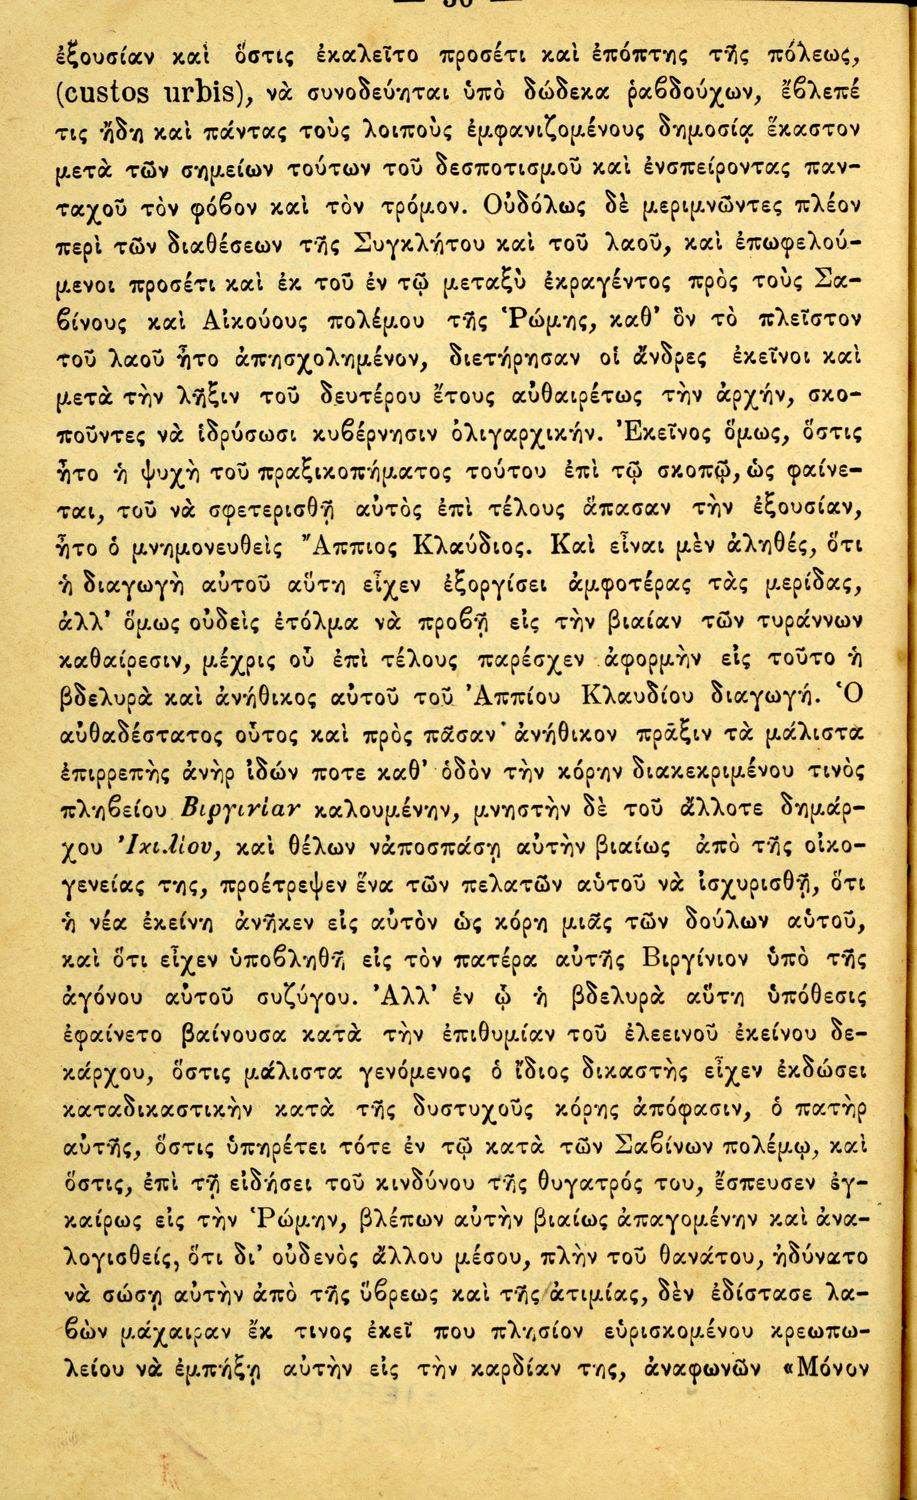 ἐξουσίαν καὶ ὅστις ἐκαλεῖτο προσέτι καὶ ἐπόπτης τῆς πόλεως,
(custos urbis), νὰ συνοδεύηται ὑπὸ δώδεκα ῥαβδούχων, ἔβλεπέ
τις ἤδη καὶ πάντας τοὺς λοιποὺς ἐμφανιζομένους δημοσίᾳ ἕκαστον
μετὰ τῶν σημείων τούτων τοῦ δεσποτισμοῦ καὶ ἐνσπείροντας παν-
ταχοῦ τὸν φόβον καὶ τὸν τρόμον. Οὐδόλως δὲ μεριμνῶντες πλέον
περὶ τῶν διαθέσεων τῆς Συγκλήτου καὶ τοῦ λαοῦ, καὶ ἐπωφελού-
μενοι προσέτι καὶ ἐκ τοῦ ἐν τῷ μεταξὺ ἐκραγέντος πρὸς τοὺς Σα-
βίνους καὶ Αἰκούους πολέμου τῆς Ῥώμης, καθ’ ὃν τὸ πλεῖστον
τοῦ λαοῦ ἦτο ἀπησχολημένον, διετήρησαν οἱ ἄνδρες ἐκεῖνοι καὶ
μετὰ τὴν λῆξιν τοῦ δευτέρου ἔτους αὐθαιρέτως τὴν ἀρχήν, σκο-
ποῦντες νὰ ἱδρύσωσι κυβέρνησιν ὀλιγαρχικήν. Ἐκεῖνος ὅμως, ὅστις
ἦτο ἡ ψυχὴ τοῦ πραξικοπήματος τούτου ἐπὶ τῷ σκοπῷ, ὡς φαίνε-
ται, τοῦ νὰ σφετερισθῇ αὐτὸς ἐπὶ τέλους ἅπασαν τὴν ἐξουσίαν,
ἦτο ὁ μνημονευθεὶς Ἄππιος Κλαύδιος. Καὶ εἶναι μὲν ἀληθές, ὅτι
ἡ διαγωγὴ αὐτοῦ αὕτη εἶχεν ἐξοργίσει ἀμφοτέρας τὰς μερίδας,
ἀλλ’ ὅμως οὐδεὶς ἐτόλμα νὰ προβῇ εἰς τὴν βιαίαν τῶν τυράννων
καθαίρεσιν, μέχρις οὗ ἐπὶ τέλους παρέσχεν ἀφορμὴν εἰς τοῦτο ἡ
βδελυρὰ καὶ ἀνήθικος αὐτοῦ τοῦ Ἀππίου Κλαυδίου διαγωγή. Ὁ
αὐθαδέστατος οὗτος καὶ πρὸς πᾶσαν ἀνήθικον πρᾶξιν τὰ μάλιστα
ἐπιρρεπὴς ἀνὴρ ἰδών ποτε καθ’ ὁδὸν τὴν κόρην διακεκριμένου τινὸς
πληβείου Βιργινίαν καλουμένην, μνηστὴν δὲ τοῦ ἄλλοτε δημάρ-
χου Ἰκιλίου, καὶ θέλων νἀποσπάσῃ αὐτὴν βιαίως ἀπὸ τῆς οἰκο-
γενείας της, προέτρεψεν ἕνα τῶν πελατῶν αὑτοῦ νὰ ἰσχυρισθῇ, ὅτι
ἡ νέα ἐκείνη ἀνῆκεν εἰς αὐτὸν ὡς κόρη μιᾶς τῶν δούλων αὑτοῦ,
καὶ ὅτι εἶχεν ὑποβληθῆ εἰς τὸν πατέρα αὐτῆς Βιργίνιον ὑπὸ τῆς
ἀγόνου αὐτοῦ συζύγου. Ἀλλ’ ἐν ᾧ ἡ βδελυρὰ αὕτη ὑπόθεσις
ἐφαίνετο βαίνουσα κατὰ τὴν ἐπιθυμίαν τοῦ ἐλεεινοῦ ἐκείνου δε-
κάρχου, ὅστις μάλιστα γενόμενος ὁ ἴδιος δικαστὴς εἶχεν ἐκδώσει
καταδικαστικὴν κατὰ τῆς δυστυχοῦς κόρης ἀπόφασιν, ὁ πατὴρ
αὐτῆς, ὅστις ὑπηρέτει τότε ἐν τῷ κατὰ τῶν Σαβίνων πολέμῳ, καὶ
ὅστις, ἐπὶ τῇ εἰδήσει τοῦ κινδύνου τῆς θυγατρός του, ἔσπευσεν ἐγ-
καίρως εἰς τὴν Ῥώμην, βλέπων αὐτὴν βιαίως ἀπαγομένην καὶ ἀνα-
λογισθείς, ὅτι δι’ οὐδενὸς ἄλλου μέσου, πλὴν τοῦ θανάτου, ἠδύνατο
νὰ σώσῃ αὐτὴν ἀπὸ τῆς ὕβρεως καὶ τῆς ἀτιμίας, δὲν ἐδίστασε λα-
βὼν μάχαιραν ἔκ τινος ἐκεῖ που πλησίον εὑρισκομένου κρεωπω-
λείου νὰ ἐμπήξῃ αὐτὴν εἰς τὴν καρδίαν της, ἀναφωνῶν «Μόνον